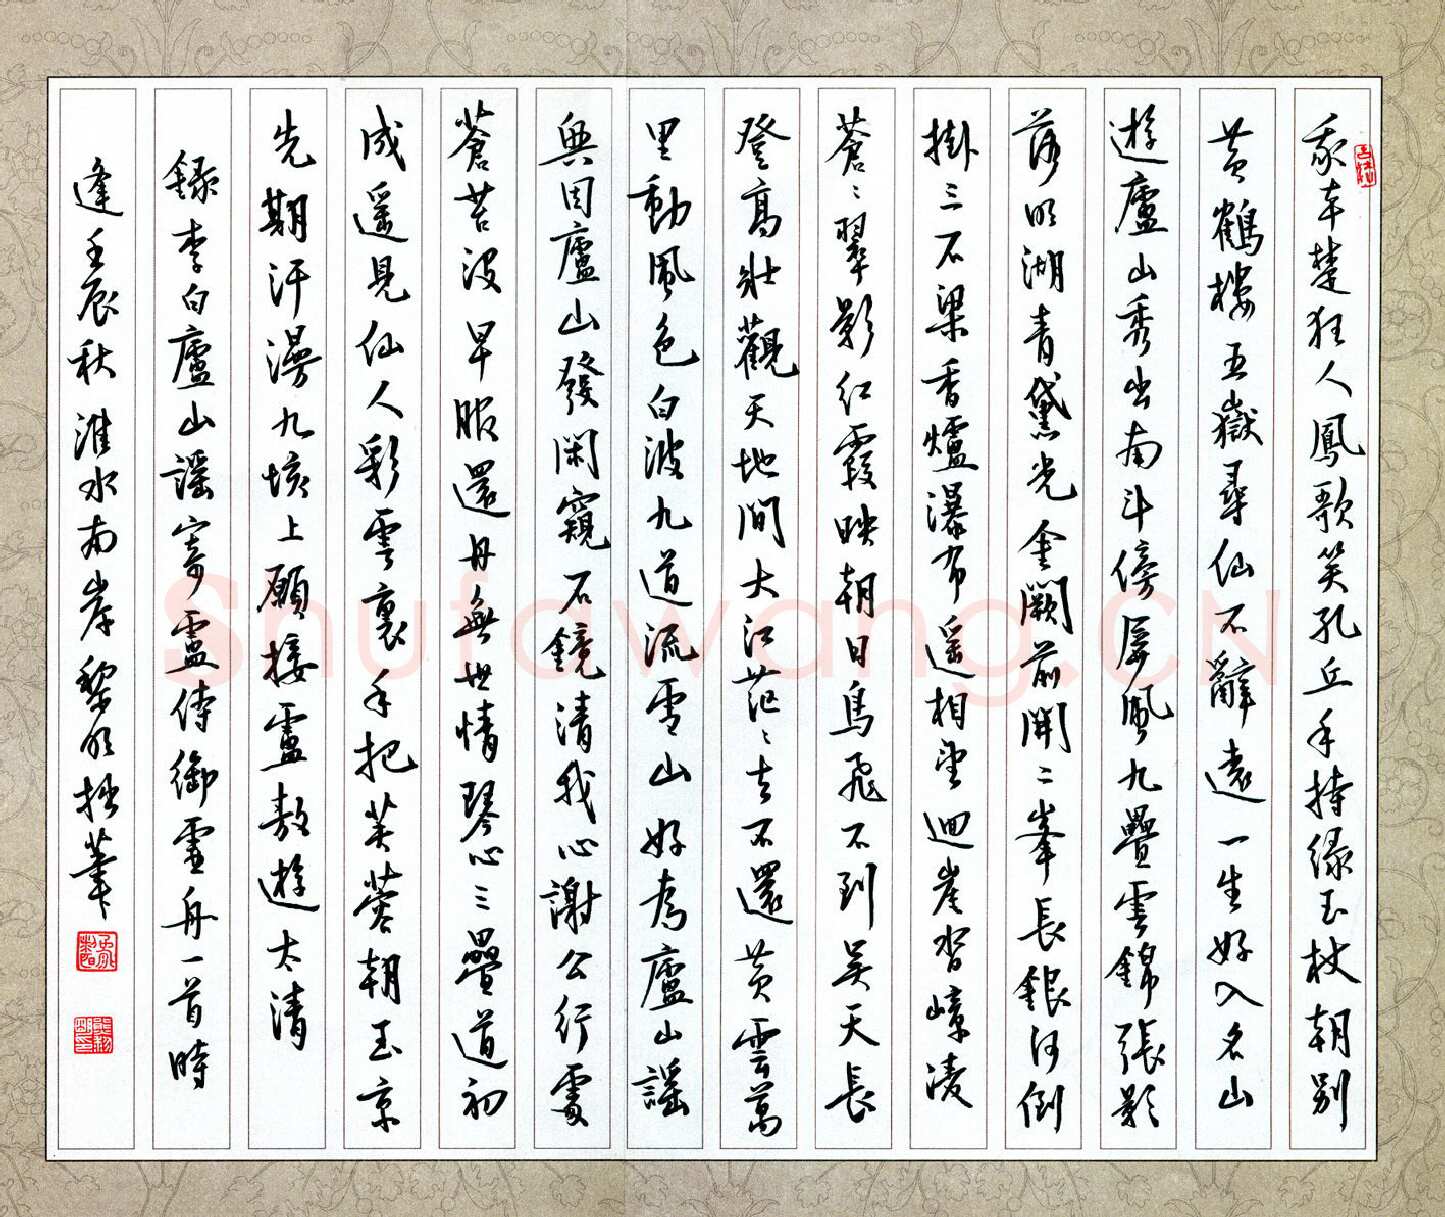 我本楚狂人鳳歌笑孔丘手持綠玉杖朝別
黄鶴樓五嶽尋仙不辭遠一生好入名山
遊廬山秀出南斗傍屏風九疊雲錦張影
落明湖青黛光金闕前開二峯長銀河倒
掛三石梁香爐瀑布遥相望迴崖沓嶂凌
蒼〻翠影紅霞映朝日鳥飛不到吴天長
登高壯觀天地間大江茫〻去不還黄雲萬
里動風色白波九道流雪山好為廬山謡
興因廬山發閑窺石鏡清我心謝公行處
蒼苔没早服還丹無世情琴心三疊道初
成遥見仙人彩雲裏手把芙蓉朝玉京
先期汗漫九垓上願接盧敖遊太清
録李白廬山謡寄盧侍御虚舟一首時
逢壬辰秋淮水南岸黎明拙筆
Shufawang.CN